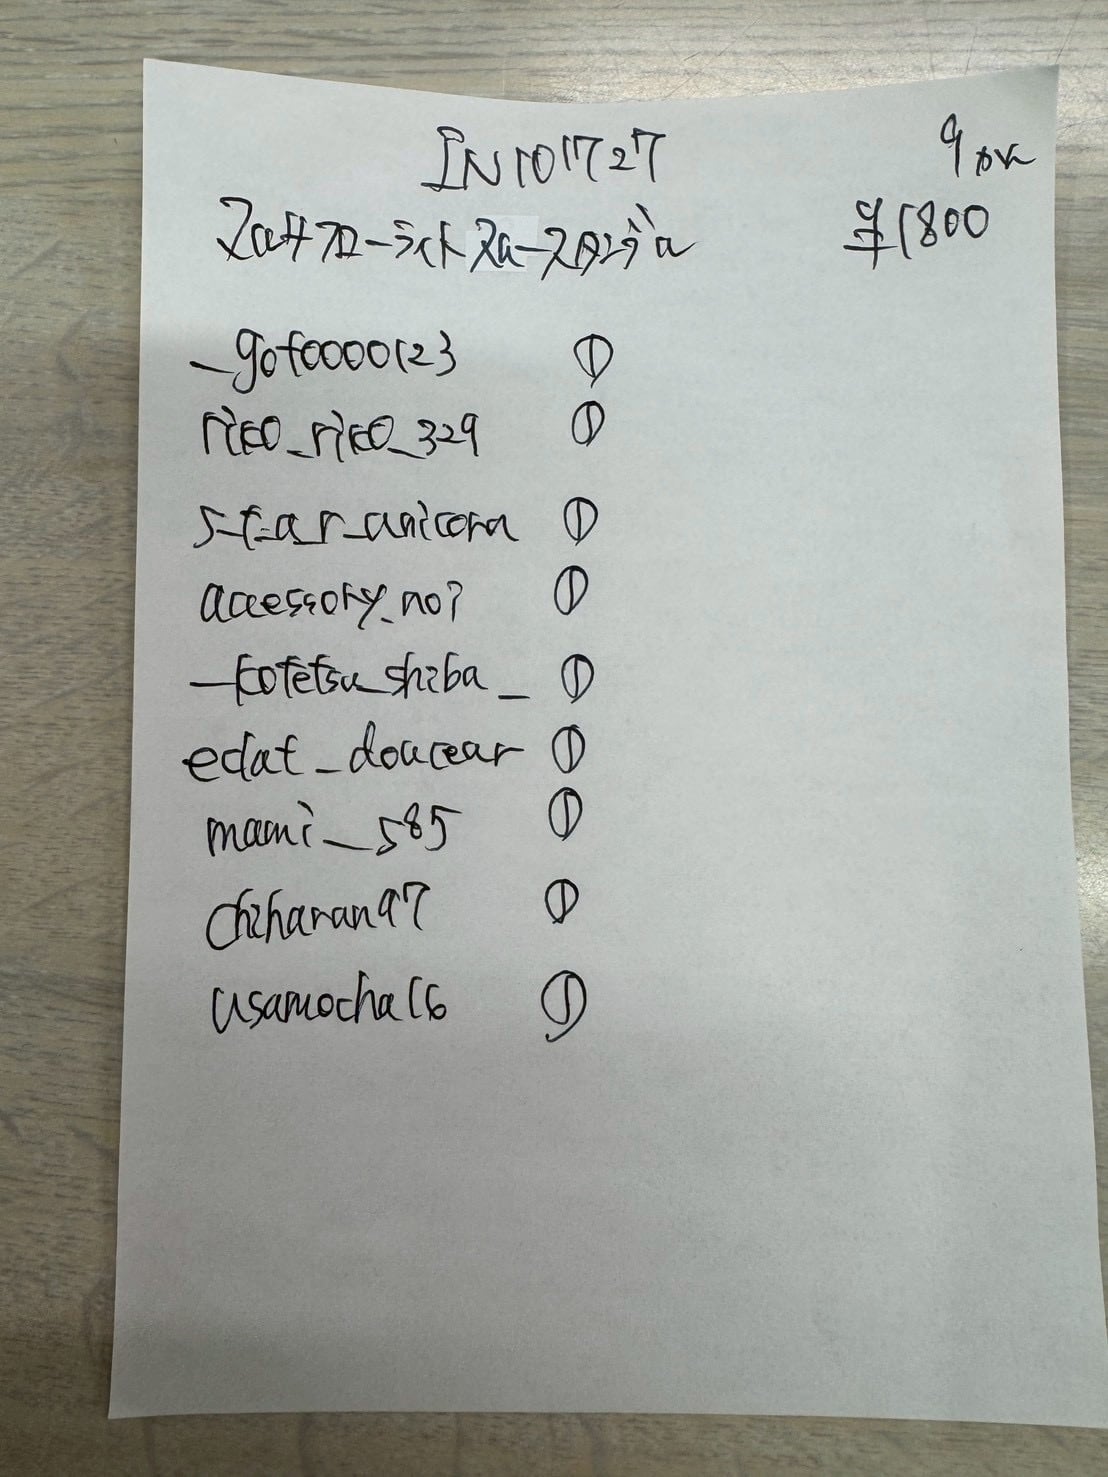 IN101727
9本
¥1800
_goto0000123 ①
rico_rico_329 ①
s_t_a_r_unicorn ①
accessory_no7 ①
_kotetsu_shiba_ ①
eclat_douceur ①
mami_585 ①
chiharan97 ①
usamocha16 ①